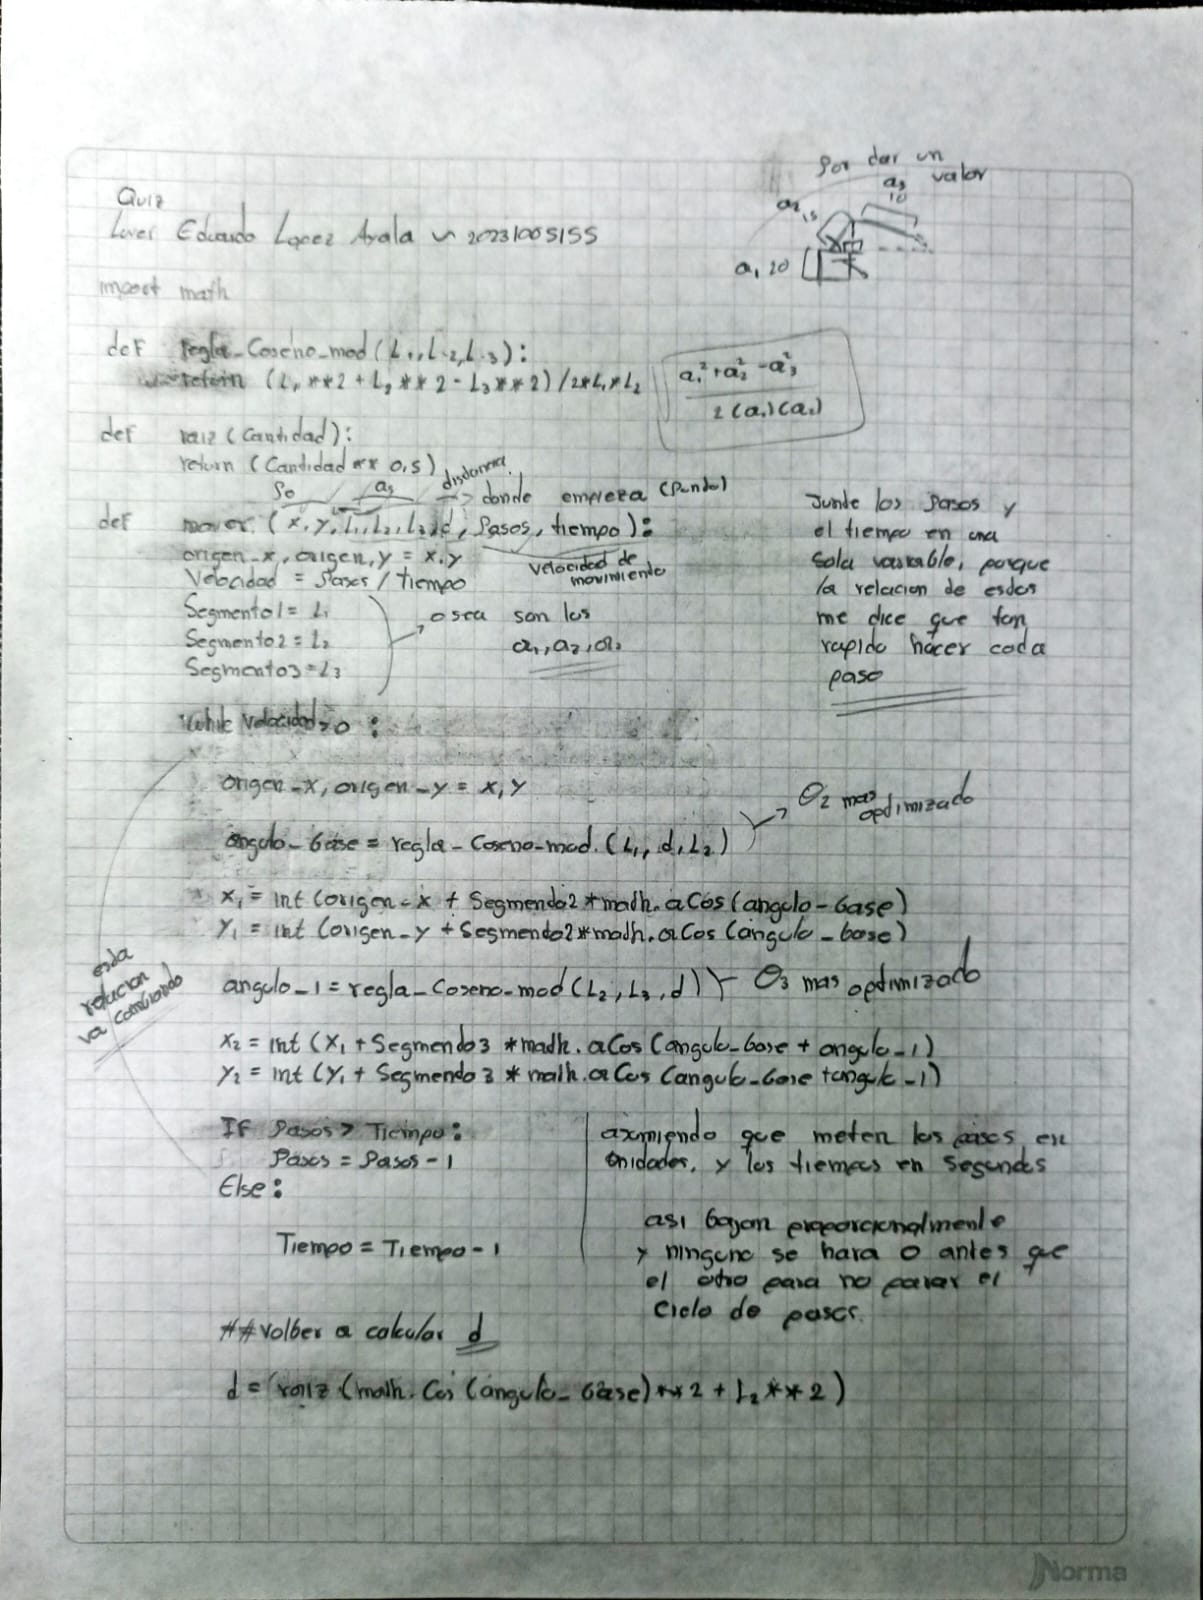 Por dar un
valor
a3
10
a2 15
a1 20
Quiz
Lover Eduardo Lopez Ayala ~ 20231005155
import math
def regla_Coseno_mod (L1, L2, L3):
return (L1 **2 + L2 ** 2 - L3 ** 2) / 2*L1*L2
a1² + a2² - a3²
2 (a1) (a2)
def raiz (Cantidad):
return (Cantidad ** 0,5)
Po
a3
distancia
donde empieza (Punto)
def mover (x, y, L1, L2, L3, d, Pasos, tiempo):
origen_x, origen_y = x, y
Velocidad de
movimiento
Velocidad = Pasos / tiempo
Segmento1 = L1
Segmento2 = L2
Segmento3 = L3
osea son los
a1, a2, a3
Junte los pasos y
el tiempo en una
sola variable, porque
la relacion de estos
me dice que tan
rapido hacer cada
paso
While Velocidad > 0 :
origen_x, origen_y = x, y
angulo_base = regla_Coseno_mod. (L1, d, L2)
θ2 mas
optimizado
x1 = int (origen_x + Segmento2 * math. aCos (angulo_base)
y1 = int (origen_y + Segmento2 * math. aCos (angulo_base)
angulo_1 = regla_Coseno_mod (L2, L3, d)
θ3 mas optimizado
x2 = int (x1 + Segmento3 * math. aCos (angulo_base + angulo_1)
y2 = int (y1 + Segmento3 * math. aCos (angulo_base + angulo_1)
esta
relacion
va cambiando
If Pasos > Tiempo :
Pasos = Pasos - 1
Else :
Tiempo = Tiempo - 1
asumiendo que meten los pasos en
unidades, y los tiempos en segundos
asi bajan proporcionalmente
y ninguno se hara 0 antes que
el otro para no parar el
ciclo de pasos.
## volber a calcular d
d = raiz (math. Cos (angulo_base) ** 2 + L2 ** 2)
Norma